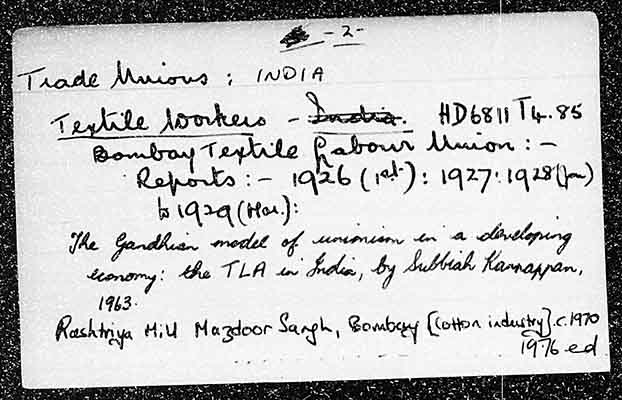 - 2 -
Trade Unions : INDIA
Textile Workers - India. HD6811 T4.85
Bombay Textile Labour Union : -
Reports : - 1926 (1st.) : 1927 : 1928 (Jan)
to 1929 (Mar.) :
The Gandhian model of unionism in a developing
economy : the TLA in India, by Subbiah Kannappan,
1963.
Rashtriya Mill Mazdoor Sangh, Bombay [cotton industry]. c.1970
1976 ed